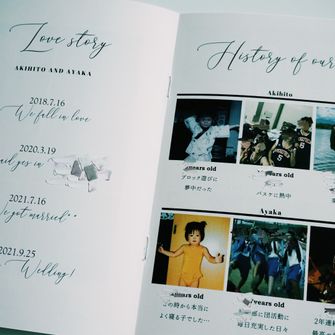 Love story
AKIHITO AND AYAKA
2018.7.16
We fall in love
2020.3.19
said yes in
2021.7.16
We got married**
2021.9.25
Wedding!
History of our
Akihito
years old
ブロック遊びに
夢中だった
years old
バスケに熱中
Ayaka
years old
この時から本当に
よく寝る子でした…
years old
部に団活動に
毎日充実した日々
2年連
最高